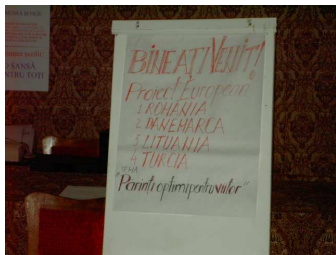 O ȘANSĂ
PENTRU TOȚI
BINEAȚI VENIT!
Proiect European
1. ROMÂNIA
2. DANEMARCA
3. LITUANIA
4. TURCIA
TEMA
"Părinți optimi pentru viitor"